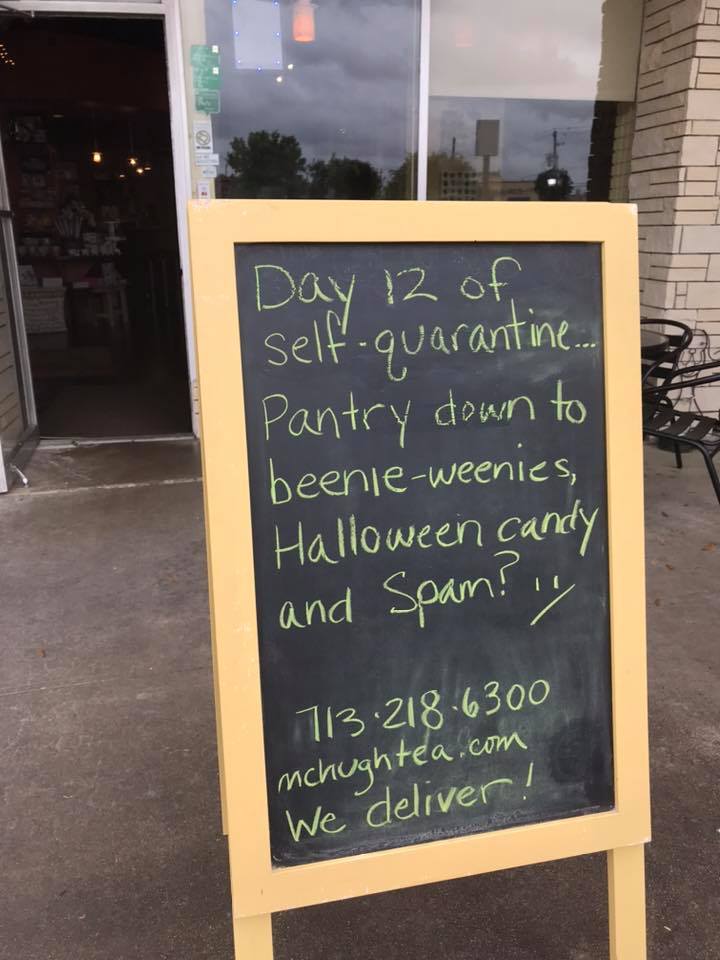 Day 12 of
self-quarantine...
Pantry down to
beenie-weenies,
Halloween candy
and Spam? ¨)
713.218.6300
mchughtea.com
We deliver!